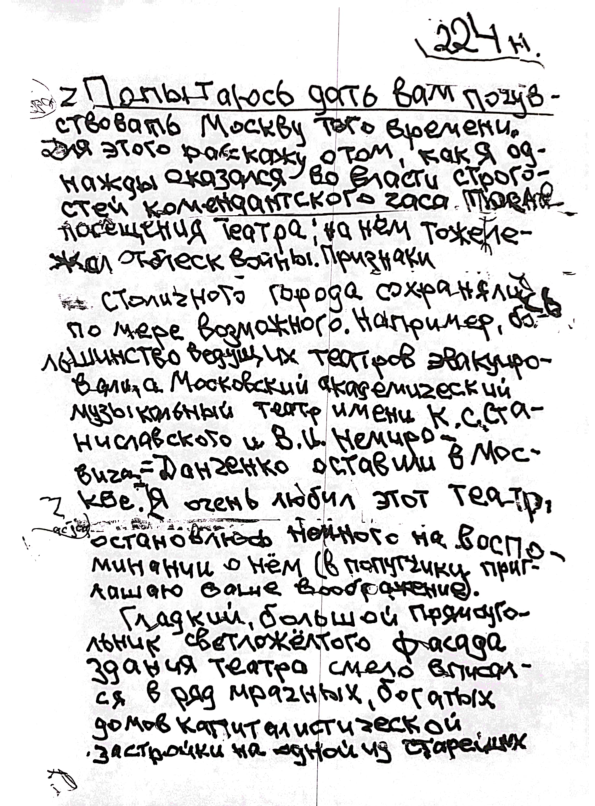 224 н.
2 Попытаюсь дать вам почув-
ствовать Москву того времени.
Для этого расскажу о том, как я од-
нажды оказался во власти строго-
стей комендантского часа
посещения театра; на нём тоже ле-
жал отблеск войны. Признаки
столичного города сохранялись
по мере возможного. Например, бо-
льшинство ведущих театров эвакуиро-
вали, а Московский академический
музыкальный театр имени К.С. Ста-
ниславского и В.И. Немиро-
вича=Данченко оставили в Мос-
кве. Я очень любил этот театр,
остановлюсь немного на воспо-
минании о нём (в попутчики приг-
лашаю ваше воображение).
Гладкий, большой прямоуго-
льник светложёлтого фасада
здания театра смело вписал-
ся в ряд мрачных, богатых
домов капиталистической
застройки на одной из старейших